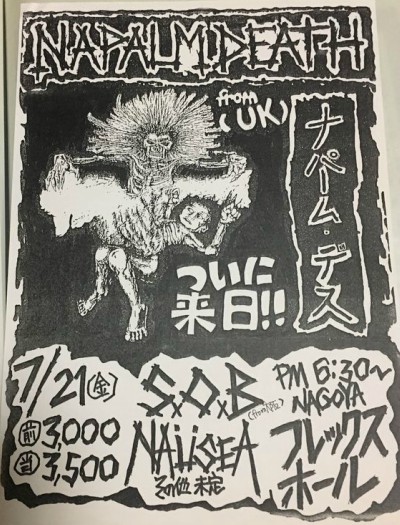 NAPALM DEATH
from
(UK)
ナパーム・デス
ついに
来日!!
7/21㊎
S.O.B
PM 6:30~
NAGOYA
前 3,000
当 3,500
NAUSEA
その他 未定
フレックス
ホール